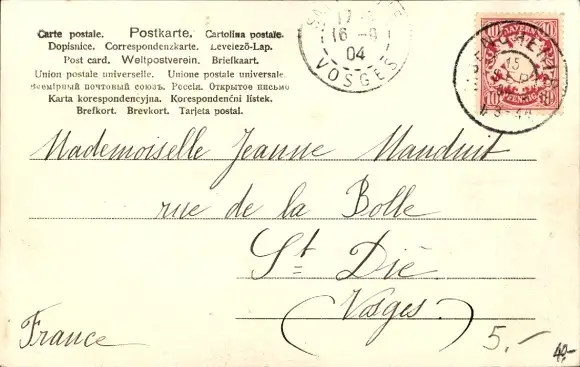 Carte postale. Postkarte. Cartolina postale.
Dopisnice. Correspondenzkarte. Levelező-Lap.
Post card. Weltpostverein. Briefkaart.
Union postale universelle. Unione postale universale
Всемірный почтовый союзъ. Россія. Открытое письмо
Karta korespondencyjna. Korespondenční listek.
Brefkort. Brevkort. Tarjeta postal.
17
16
04
VOSGES
BAYERN
10
PFENNIG
15
SEP
Mademoiselle Jeanne Mauduit
rue de la Bolle
St Dié
(Vosges.)
France
5.-
40.-